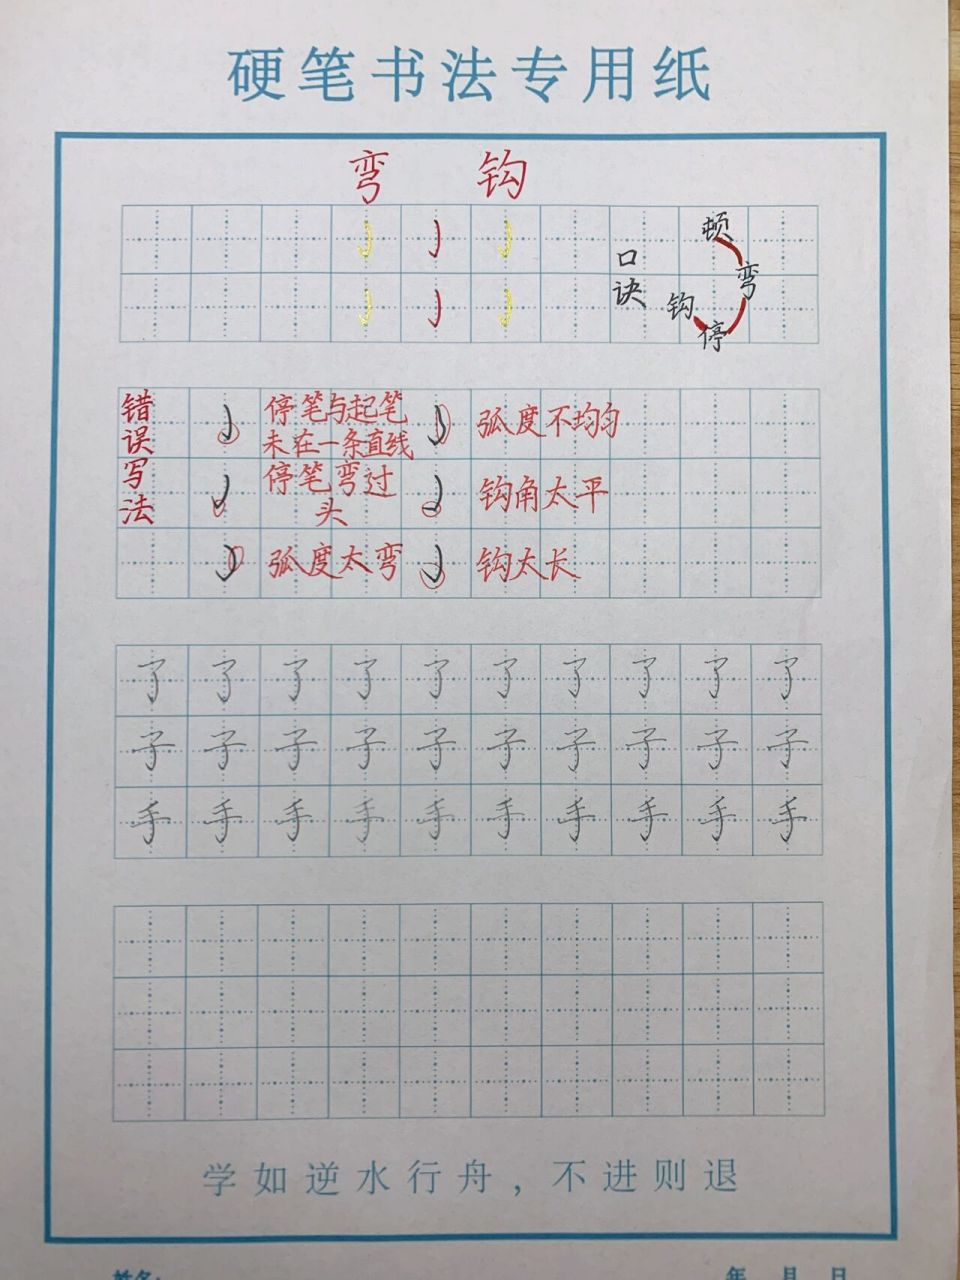 硬笔书法专用纸
弯钩
口诀
顿
弯
停
钩
错误写法
停笔与起笔
未在一条直线
弧度不均匀
停笔弯过
头
钩角太平
弧度太弯
钩太长
了了了了了了了了了了
子子子子子子子子子子
手手手手手手手手手手
学如逆水行舟，不进则退
姓名: 年 月 日